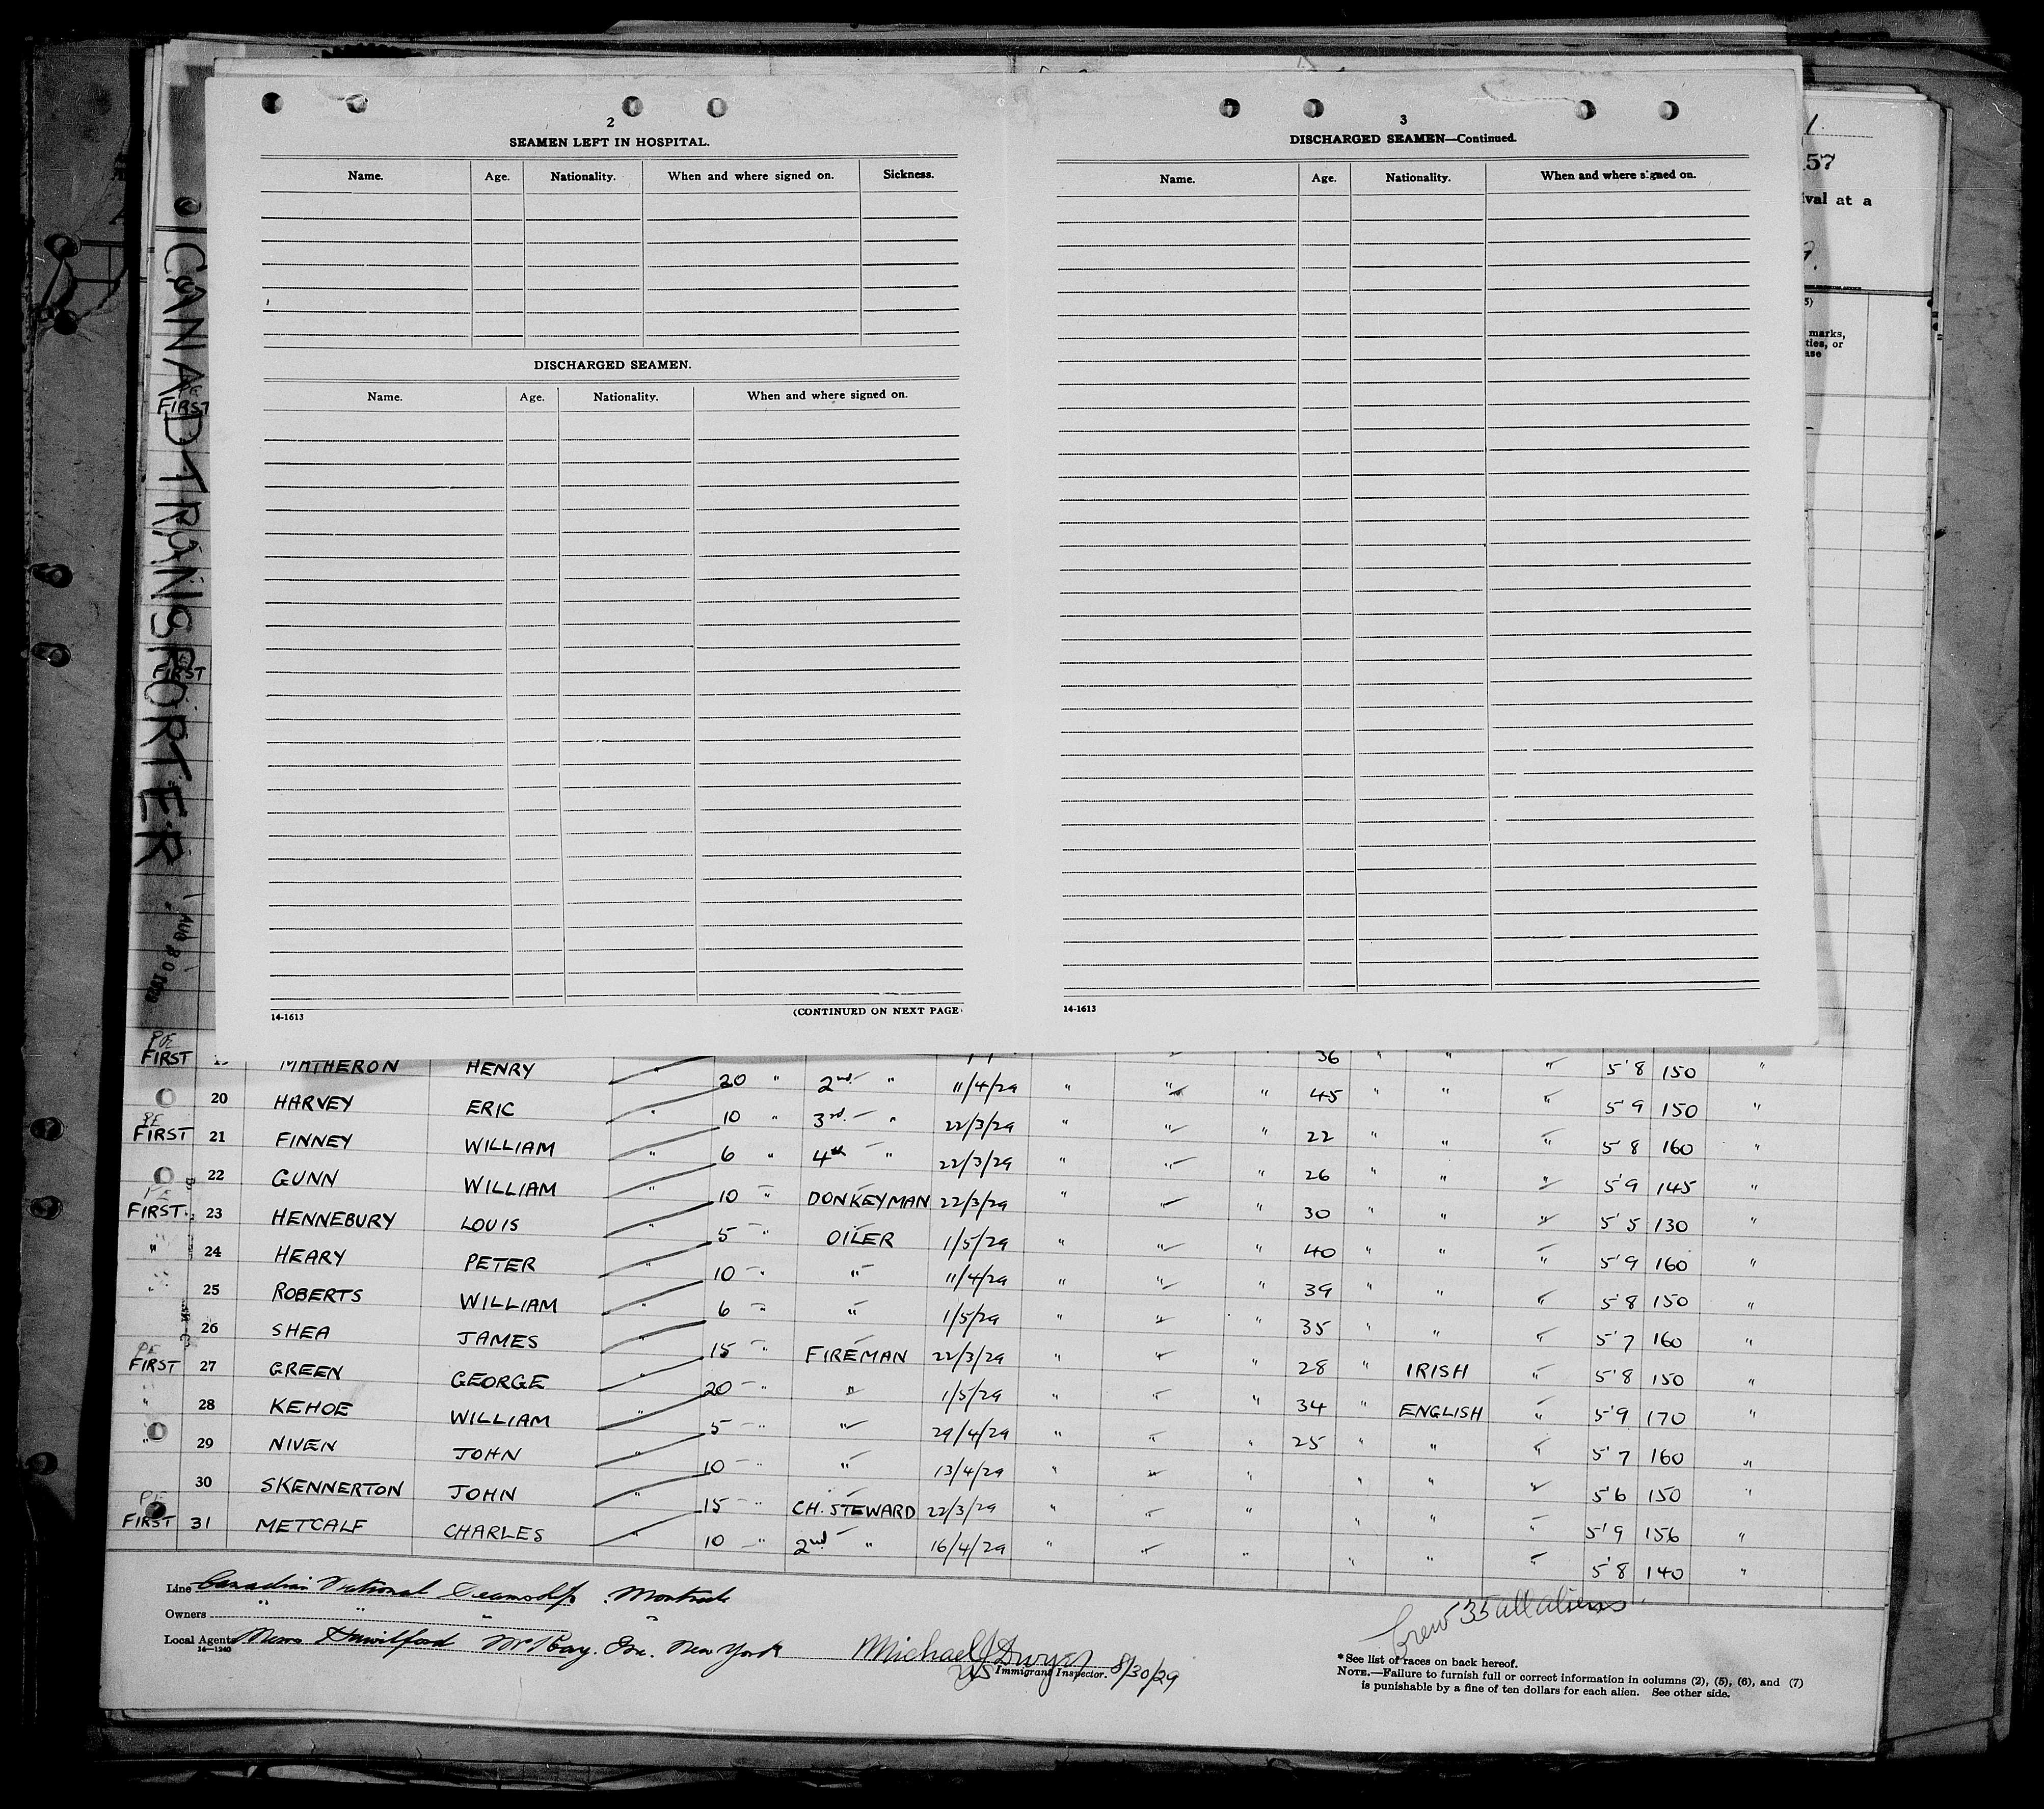 2
SEAMEN LEFT IN HOSPITAL.
Name. Age. Nationality. When and where signed on. Sickness.
DISCHARGED SEAMEN.
Name. Age. Nationality. When and where signed on.
14-1613 (CONTINUED ON NEXT PAGE
3
DISCHARGED SEAMEN—Continued.
Name. Age. Nationality. When and where signed on.
14-1613
1.
57
ival at a
marks,
ties, or
ase
CANAD TRANSPORTER
AUG 30 1929
FIRST
FIRST
FIRST MATHERON HENRY " 20 " 2nd " 11/4/29 " " " 36 " " " 5'8 150 "
20 HARVEY ERIC " 10 " 3rd " 22/3/29 " " " 45 " " " 5'9 150 "
FIRST 21 FINNEY WILLIAM " 6 " 4th " 22/3/29 " " " 22 " " " 5'8 160 "
22 GUNN WILLIAM " 10 " DONKEYMAN 22/3/29 " " " 26 " " " 5'9 145 "
FIRST 23 HENNEBURY LOUIS " 5 " OILER 1/5/29 " " " 30 " " " 5'5 130 "
" 24 HEARY PETER " 10 " " 11/4/29 " " " 40 " " " 5'9 160 "
" 25 ROBERTS WILLIAM " 6 " " 1/5/29 " " " 39 " " " 5'8 150 "
26 SHEA JAMES " 15 " FIREMAN 22/3/29 " " " 35 " " " 5'7 160 "
FIRST 27 GREEN GEORGE " 20 " " 1/5/29 " " " 28 " IRISH " 5'8 150 "
" 28 KEHOE WILLIAM " 5 " " 29/4/29 " " " 34 " ENGLISH " 5'9 170 "
" 29 NIVEN JOHN " 10 " " 13/4/29 " " " 25 " " " 5'7 160 "
30 SKENNERTON JOHN " 15 " CH. STEWARD 22/3/29 " " " " " " 5'6 150 "
FIRST 31 METCALF CHARLES " 10 " 2nd " 16/4/29 " " " " " " 5'9 156 "
5'8 140 "
Line Canadian National Steamships Montreal
Owners " " " "
Local Agents New York
14—1240
Michael J Dwyer
US Immigrant Inspector. 8/30/29
Crew 35 all aliens
* See list of races on back hereof.
NOTE.—Failure to furnish full or correct information in columns (2), (5), (6), and (7)
is punishable by a fine of ten dollars for each alien. See other side.